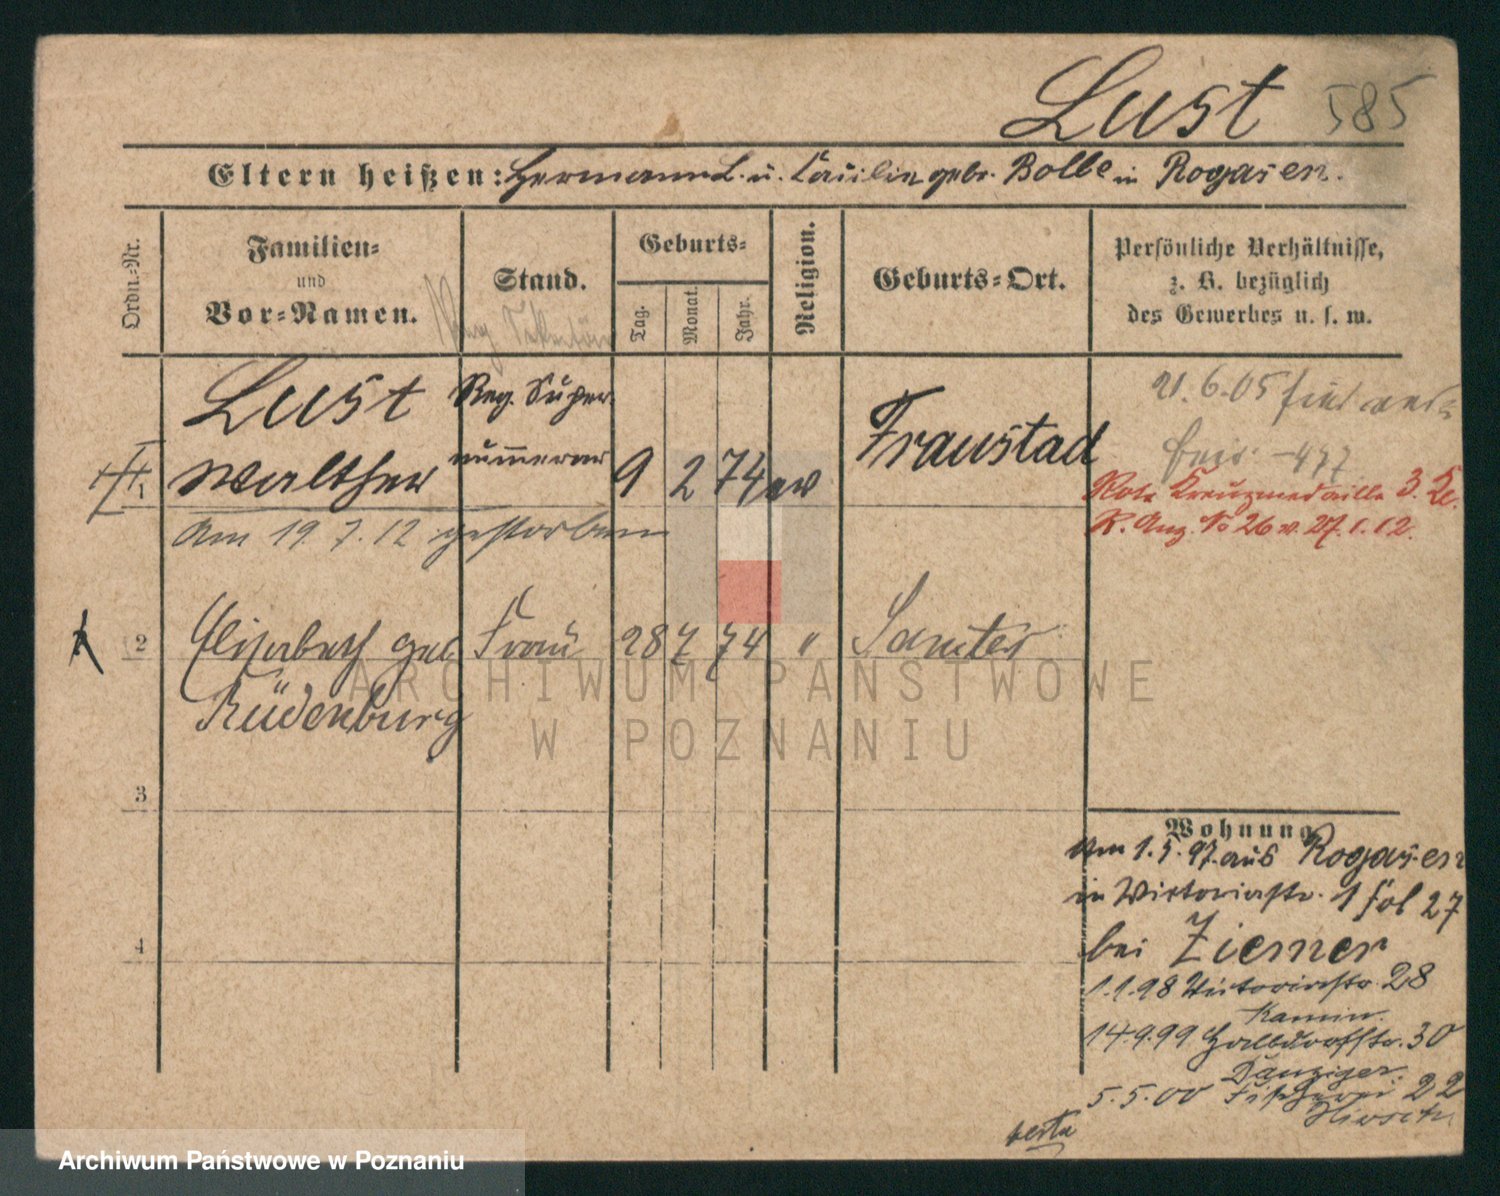 Lust 585
Eltern heißen: Hermann L. u. Paulin gebr. Bolle in Rogasen.
Ordn.-Nr.
Familien-
und
Vor-Namen.
Stand.
Geburts-
Tag.
Monat.
Jahr.
Religion.
Geburts-Ort.
Persönliche Verhältnisse,
z. B. bezüglich
des Gewerbes u. s. w.
Lust Reg. Super-
numerar
Walther 9 2 74 ev Fraustad
1
am 19. 7. 12 gestorben
21. 6. 05
Rote Kreuzmedaille 3. Kl.
R. Anz. No 26 v. 27. 1. 12.
2 Elisabeth geb. Frau 28 7 74 " Samter
Rüdenburg
3
4
Wohnung
Am 1. 5. 97. aus Rogasen
in Victoriastr. 27
bei Ziemer
1. 1. 98 Victoriastr. 28
Kamin.
14. 9. 99 Halbdorfstr. 30
Danziger.
5. 5. 00 Fischerei 22
Hirsch
ARCHIWUM PAŃSTWOWE
W POZNANIU
Archiwum Państwowe w Poznaniu